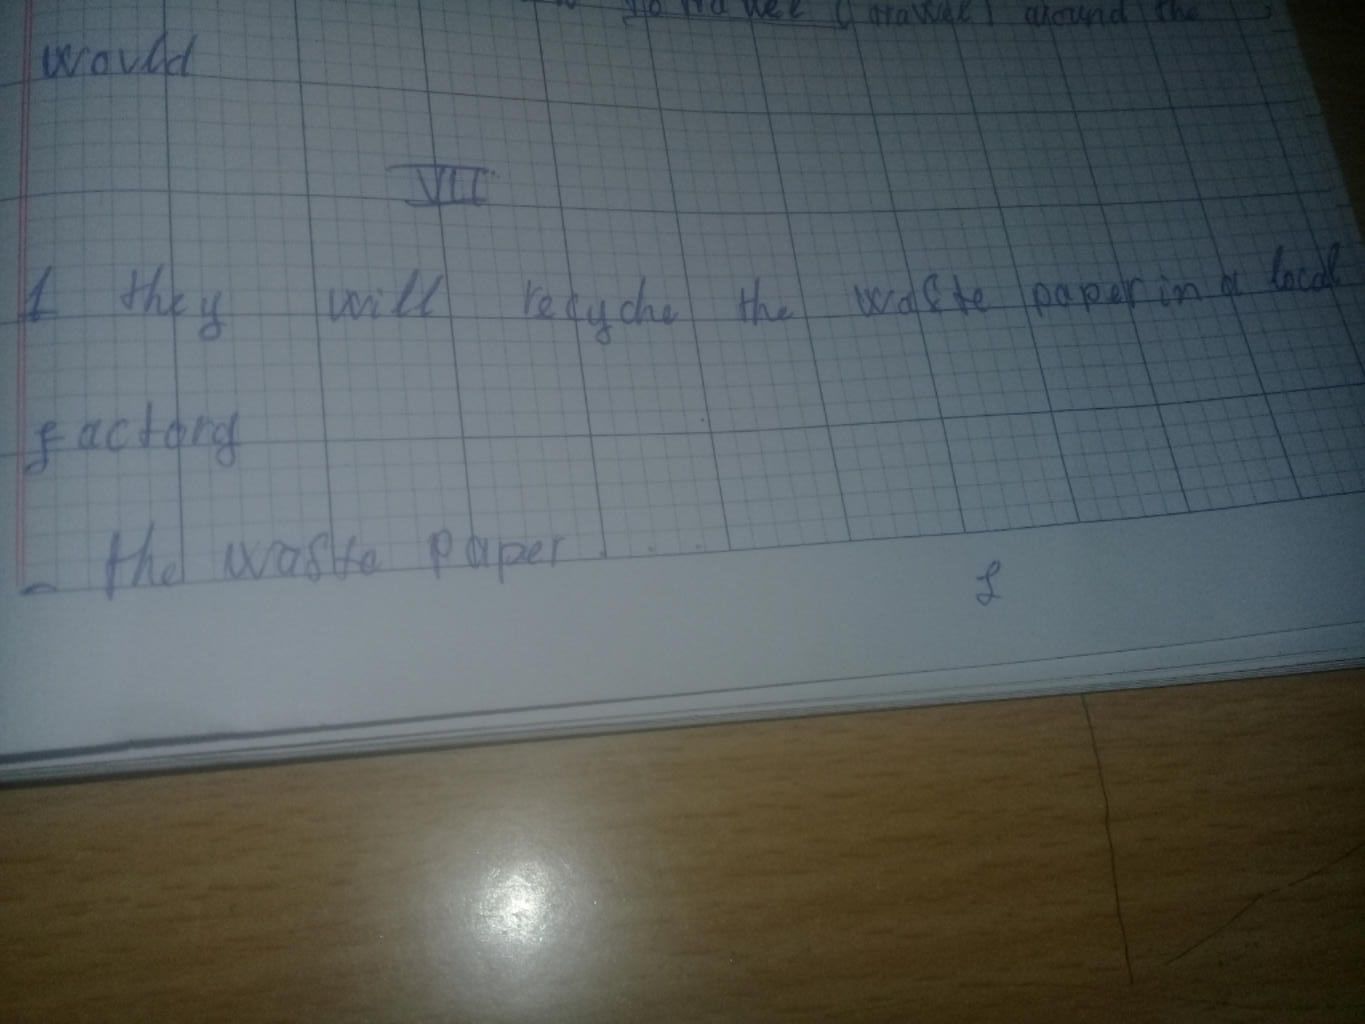 to travel (travel) around the
would
VII
1 they will recyche the waste paper in a local
factory
- the waste paper . . .